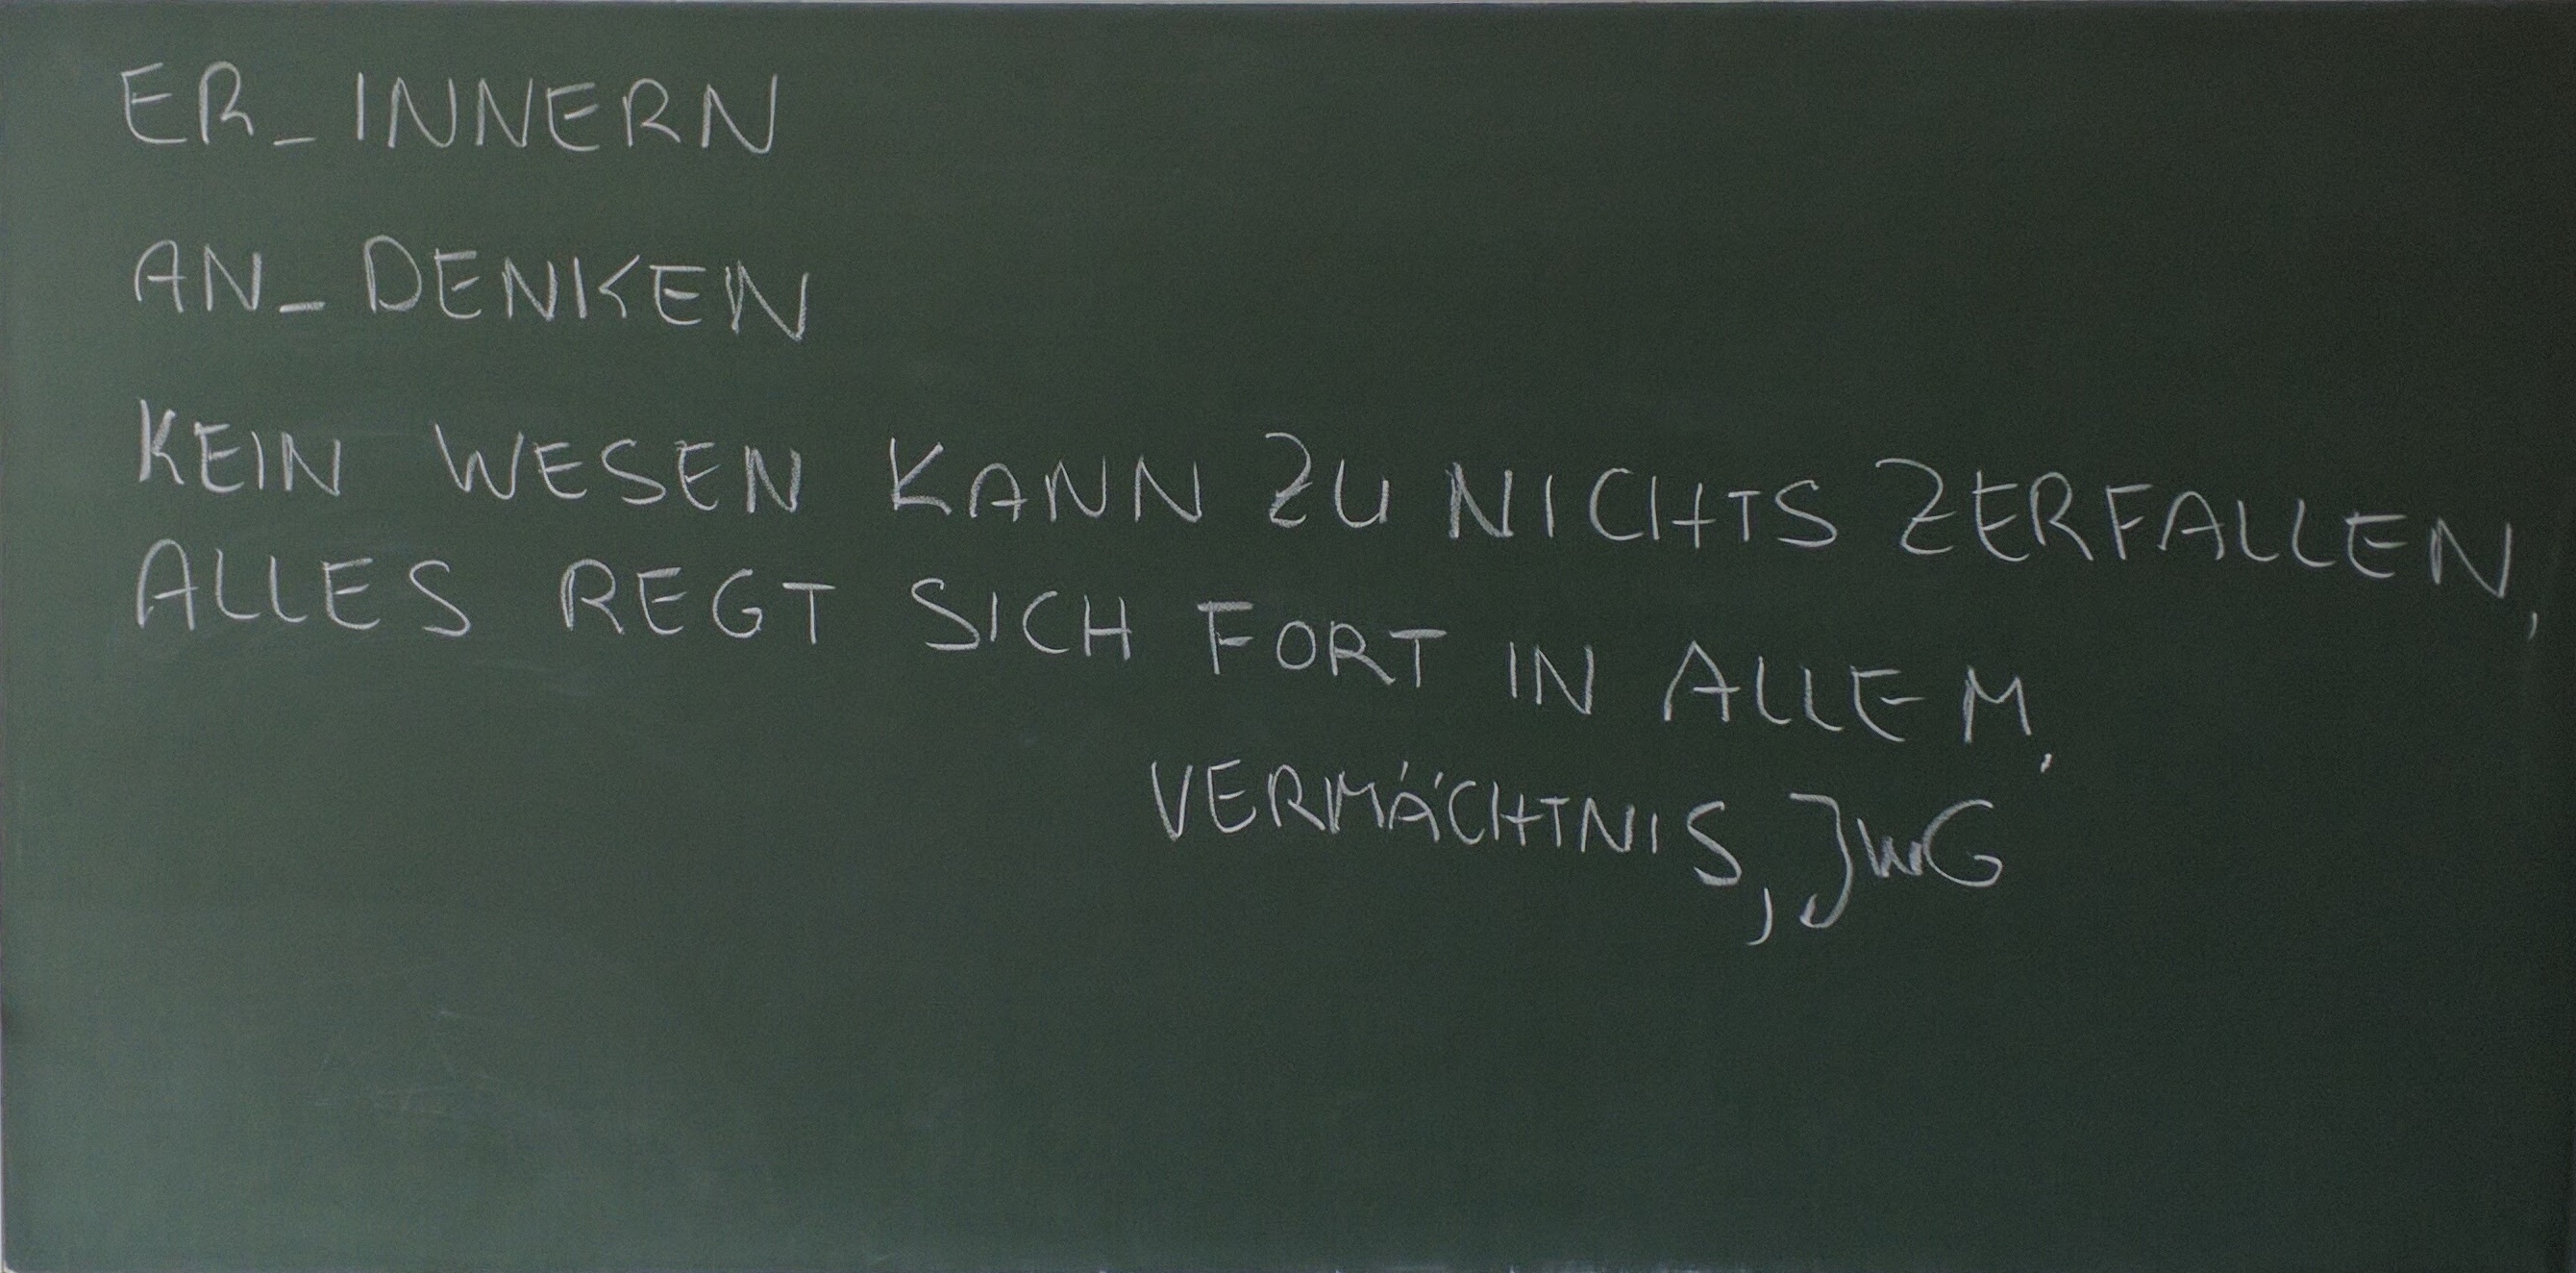 ER_INNERN
AN_DENKEN
KEIN WESEN KANN ZU NICHTS ZERFALLEN,
ALLES REGT SICH FORT IN ALLEM.
VERMÄCHTNIS, JWG